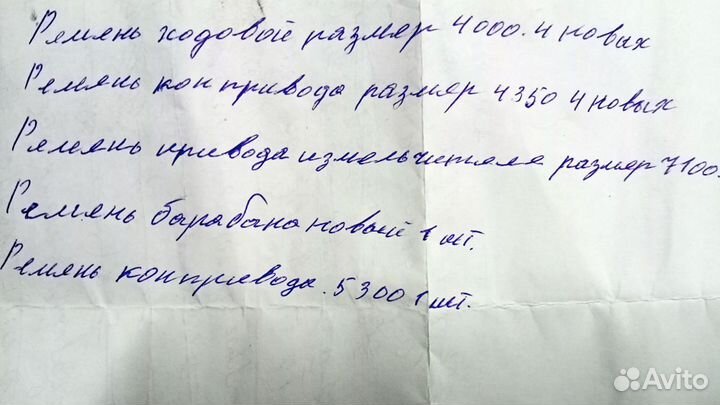 Ремень ходовой размер 4000. 4 новых
Ремень конпривода размер 4350 4 новых
Ремень привода измельчителя размер 7100.
Ремень барабана новый 1 шт.
Ремень конпривода. 5300 1 шт.
Avito